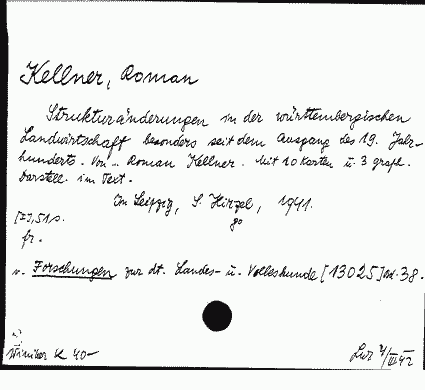 Kellner, Roman
Strukturänderungen in der württembergischen
Landwirtschaft besonders seit dem Ausgang des 19. Jahr-
hunderts. Von .. Roman Kellner. Mit 10 Karten u. 3 graph.
Darstell. im Text.
Im Leipzig, S. Hirzel, 1941.
80
51 s.
fr.
v. Forschungen zur dt. Landes- u. Volkskunde [13025] Bd. 38.
K 40-